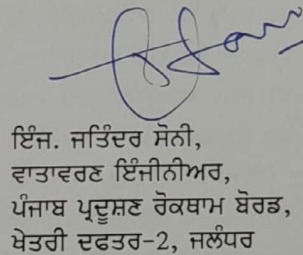 ਇੰਜ. ਜਤਿੰਦਰ ਸੋਨੀ,
ਵਾਤਾਵਰਣ ਇੰਜੀਨੀਅਰ,
ਪੰਜਾਬ ਪ੍ਰਦੂਸ਼ਣ ਰੋਕਥਾਮ ਬੋਰਡ,
ਖੇਤਰੀ ਦਫਤਰ-2, ਜਲੰਧਰ